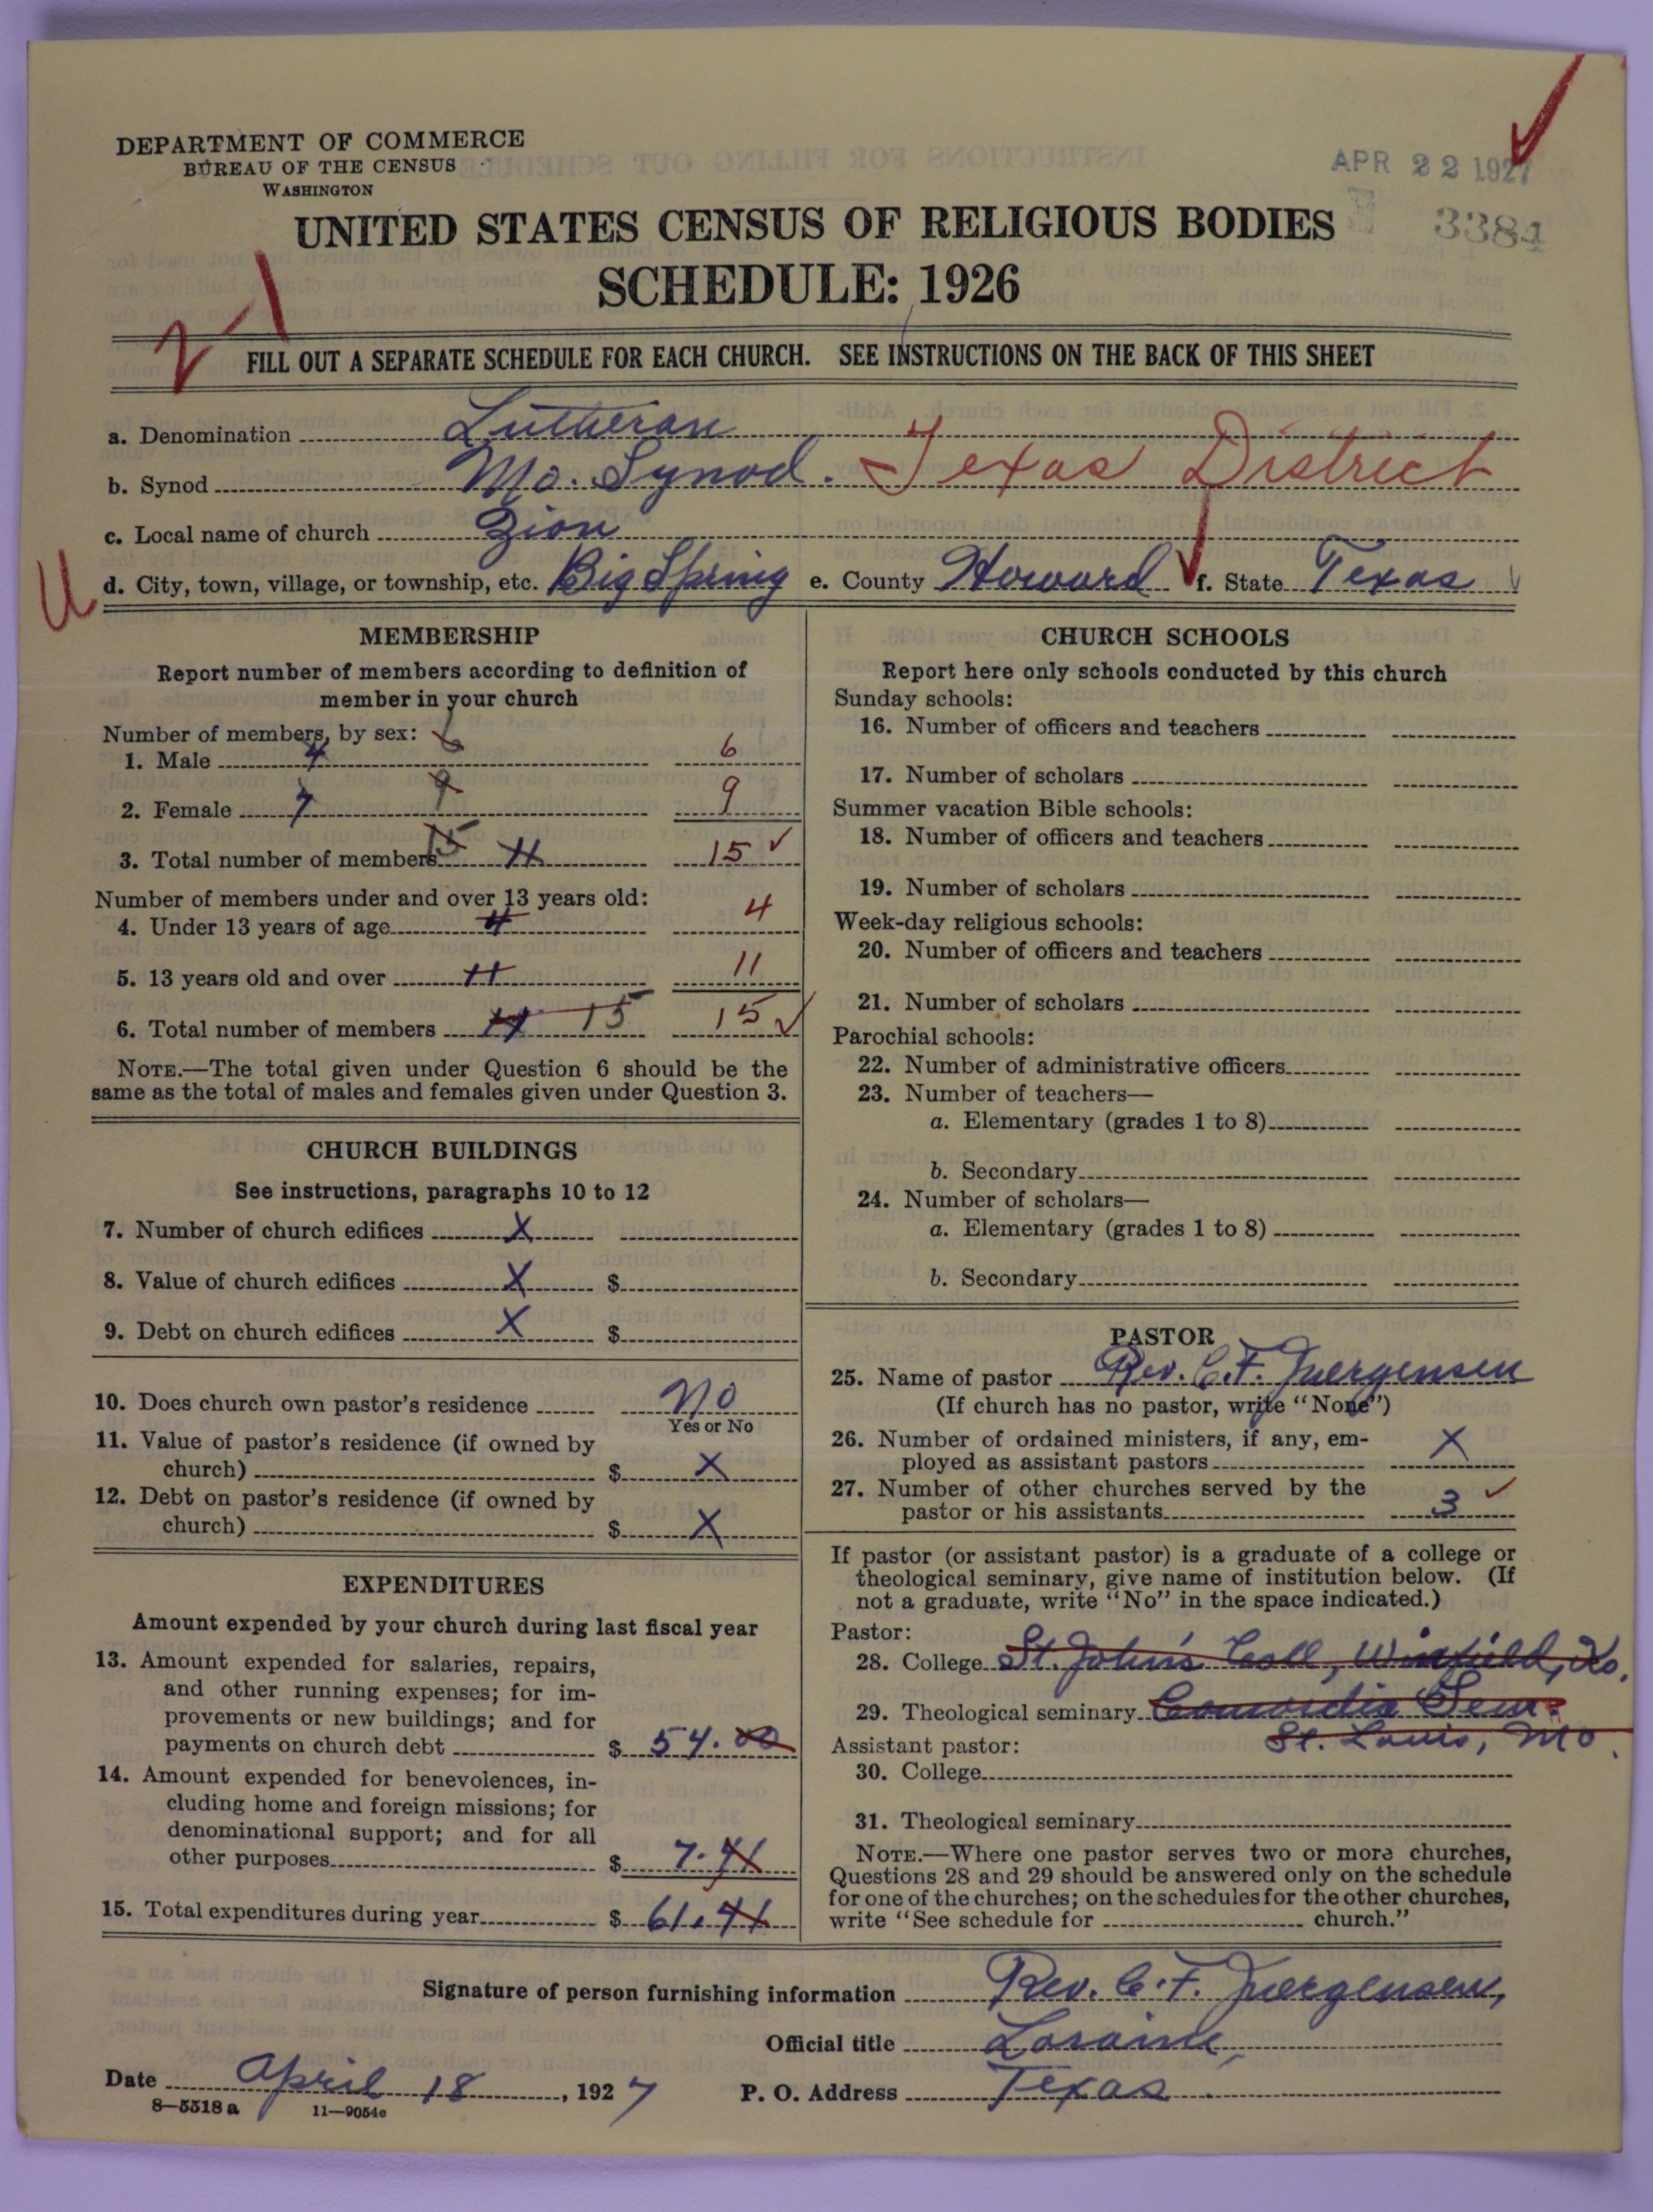 DEPARTMENT OF COMMERCE
BUREAU OF THE CENSUS
WASHINGTON
APR 22 1927
3384
UNITED STATES CENSUS OF RELIGIOUS BODIES
SCHEDULE: 1926
FILL OUT A SEPARATE SCHEDULE FOR EACH CHURCH. SEE INSTRUCTIONS ON THE BACK OF THIS SHEET
a. Denomination Lutheran
b. Synod Mo. Synod. Texas District
c. Local name of church Zion
d. City, town, village, or township, etc. Big Spring e. County Howard f. State Texas
MEMBERSHIP
Report number of members according to definition of
member in your church
Number of members, by sex: 6
1. Male 4 6
2. Female 7 9 9
3. Total number of members 15 11 15
Number of members under and over 13 years old:
4. Under 13 years of age 4 4
5. 13 years old and over 11 11
6. Total number of members 11 15 15
NOTE.—The total given under Question 6 should be the
same as the total of males and females given under Question 3.
CHURCH BUILDINGS
See instructions, paragraphs 10 to 12
7. Number of church edifices X
8. Value of church edifices X $
9. Debt on church edifices X $
10. Does church own pastor's residence No
Yes or No
11. Value of pastor's residence (if owned by
church) $ X
12. Debt on pastor's residence (if owned by
church) $ X
EXPENDITURES
Amount expended by your church during last fiscal year
13. Amount expended for salaries, repairs,
and other running expenses; for im-
provements or new buildings; and for
payments on church debt $ 54.00
14. Amount expended for benevolences, in-
cluding home and foreign missions; for
denominational support; and for all
other purposes $ 7.41
15. Total expenditures during year $ 61.41
CHURCH SCHOOLS
Report here only schools conducted by this church
Sunday schools:
16. Number of officers and teachers
17. Number of scholars
Summer vacation Bible schools:
18. Number of officers and teachers
19. Number of scholars
Week-day religious schools:
20. Number of officers and teachers
21. Number of scholars
Parochial schools:
22. Number of administrative officers
23. Number of teachers—
a. Elementary (grades 1 to 8)
b. Secondary
24. Number of scholars—
a. Elementary (grades 1 to 8)
b. Secondary
PASTOR
25. Name of pastor Rev. C. F. Juergensen
(If church has no pastor, write "None")
26. Number of ordained ministers, if any, em-
ployed as assistant pastors X
27. Number of other churches served by the
pastor or his assistants 3
If pastor (or assistant pastor) is a graduate of a college or
theological seminary, give name of institution below. (If
not a graduate, write "No" in the space indicated.)
Pastor:
28. College St. John's Coll, Winfield, Ks.
29. Theological seminary Concordia Sem.
St. Louis, Mo.
Assistant pastor:
30. College
31. Theological seminary
NOTE.—Where one pastor serves two or more churches,
Questions 28 and 29 should be answered only on the schedule
for one of the churches; on the schedules for the other churches,
write "See schedule for church."
Signature of person furnishing information Rev. C. F. Juergensen,
Official title Loraine,
Date April 18, 1927 P. O. Address Texas
8—5518 a 11—9054c